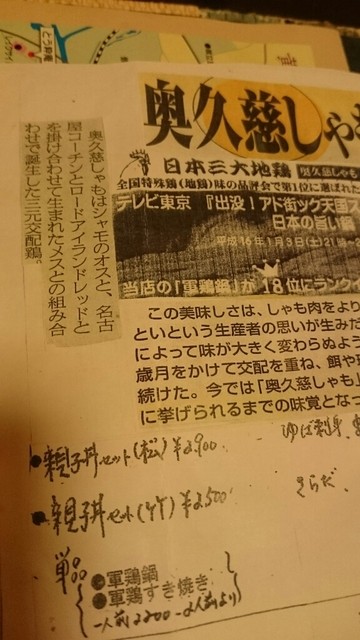 奥久慈しゃも
日本三大地鶏
奥久慈しゃも
全国特殊鶏(地鶏)味の品評会で第1位に選ばれま
テレビ東京 『出没!アド街ック天国ス
日本の旨い鍋
平成16年1月3日(土)21時
当店の「軍鶏鍋」が18位にランクイ
奥久慈しゃもはシャモのオスと、名古
屋コーチンとロードアイランドレッドと
を掛け合わせて生まれたメスとの組み合
わせで誕生した三元交配鶏。
この美味しさは、しゃも肉をより
といという生産者の思いが生みだ
によって味が大きく変わらぬよう
歳月をかけて交配を重ね、餌や環
続けた。今では「奥久慈しゃも」
に挙げられるまでの味覚となっ
●親子丼セット(松)¥2,900
ゆば刺身
●親子丼セット(竹)¥2,500
さらだ、
単品
●軍鶏鍋
●軍鶏すき焼き
一人前2200-2人前より